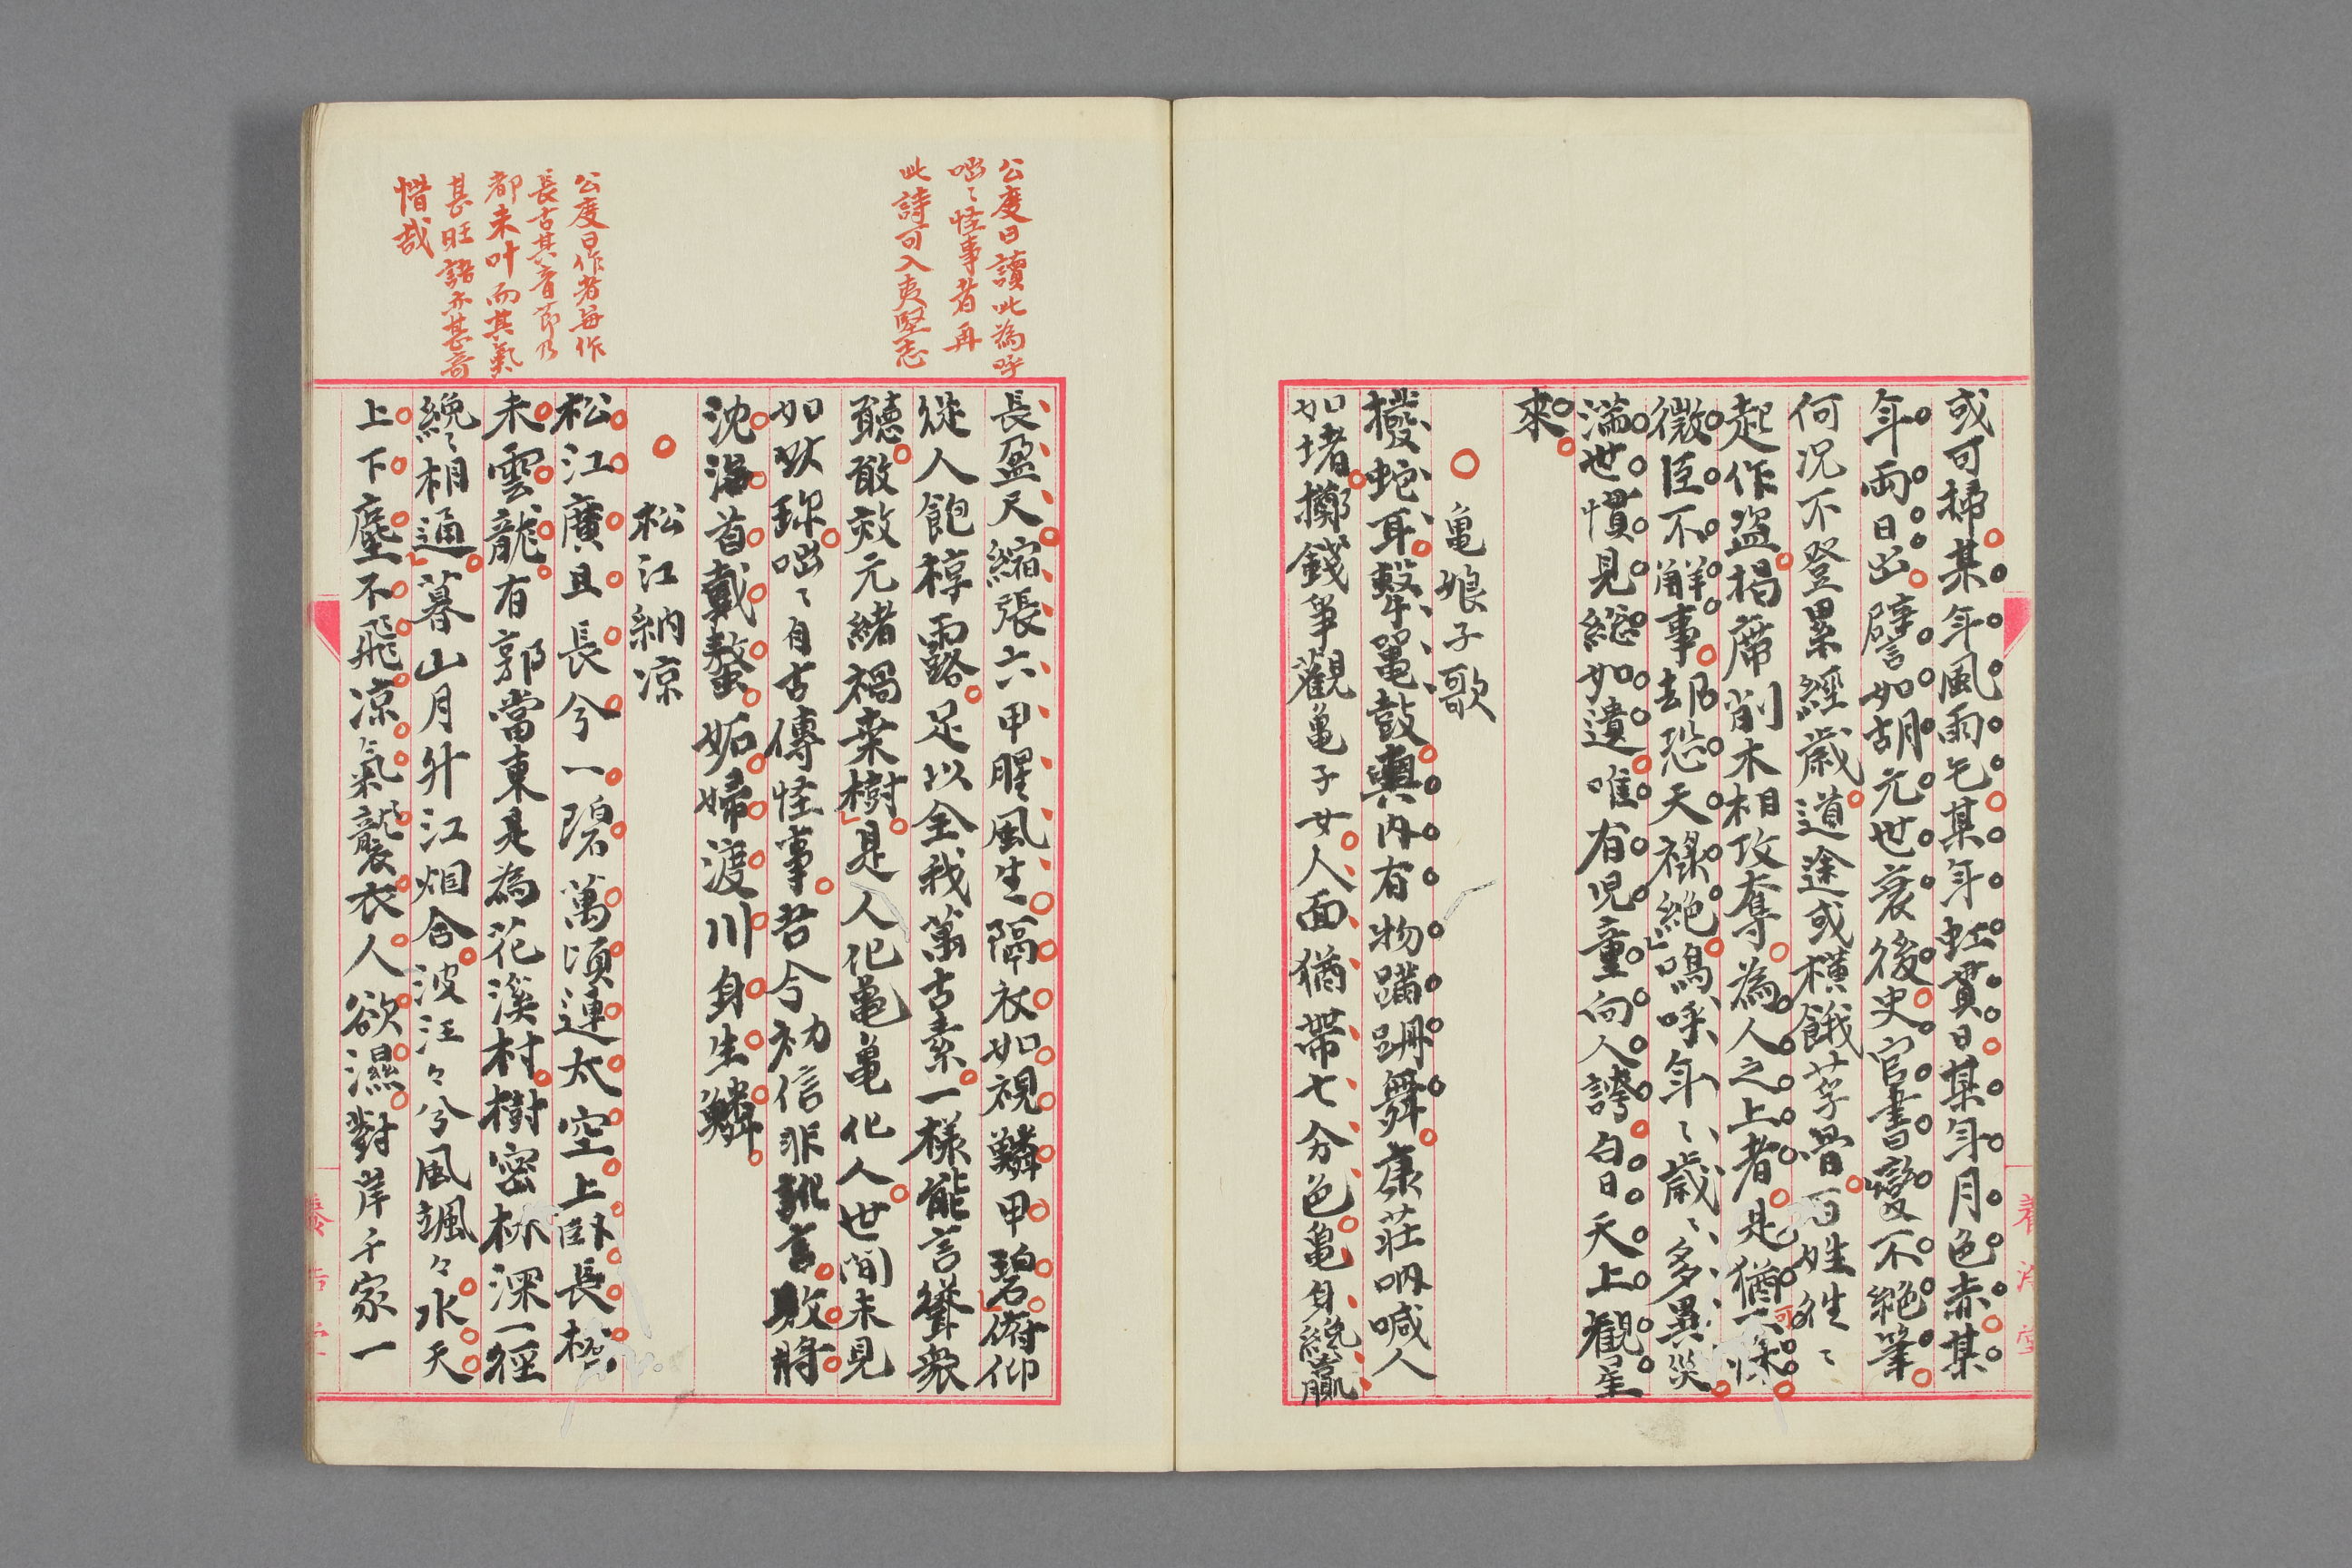 或可掃某年風雨乞某年虹貫日某年月色赤某
年兩日出譬如胡元世衰後史官書變不絕筆
何况不登累經歲道途或橫餓莩骨百姓往〻
起作盜揭席削木相攻奪為人之上者是猶可
微臣不解事却恐天祿絕嗚呼年〻歲〻多異災
濡世慣見総如遺唯有児童向人誇白日天上觀星
來
亀娘子歌
機蛇耳擊鼉鼓輿內有物蹣跚舞康莊吶喊人
如堵擲錢爭觀亀子女人面猶帶七分色亀身纔贏
長盈尺縮張六甲腥風生隔衣如視鱗甲碧俯仰
從人飽椁露足以全我萬古素一樣能言聳衆
聽敢效元緒禍桒樹是人化亀亀化人世間未見
如此珎咄〻自古傳怪事若今初信非訛言敗將
沈海首戴螯妬婦渡川身生鱗
松江納凉
松江廣且長兮一碧萬頃連太空上卧長橋
未雲龍有郭當東是為花溪村樹密林深一徑
綄〻相通暮山月升江烟含波汪々兮風颯々水天
上下塵不飛凉氣襲衣人欲濕對岸千家一
公度曰讀此為呼
咄〻怪事者再
此詩可入夷堅志
公度曰作者每作
長古其音節乃
都未叶而其氣
甚旺語亦甚奇
惜哉